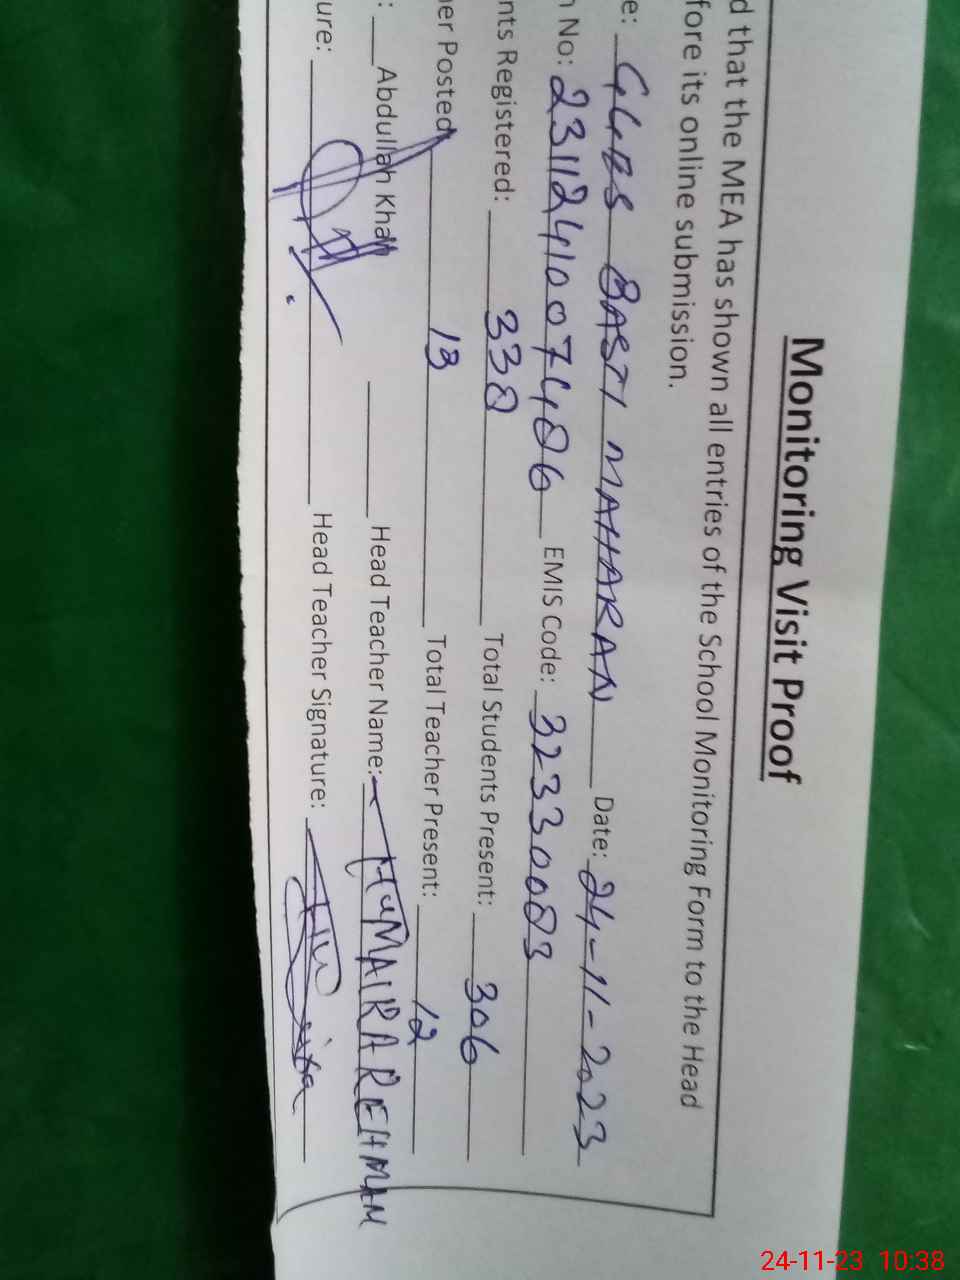 Monitoring Visit Proof
d that the MEA has shown all entries of the School Monitoring Form to the Head
fore its online submission.
e: GGES BASTI MAHARAN Date: 24-11-2023
n No: 23112410074886 EMIS Code: 32330083
nts Registered: 338 Total Students Present: 306
er Posted 13 Total Teacher Present: 12
: Abdullah Khan Head Teacher Name: HUMAIRA REHMAN
ure: Head Teacher Signature:
24-11-23 10:38